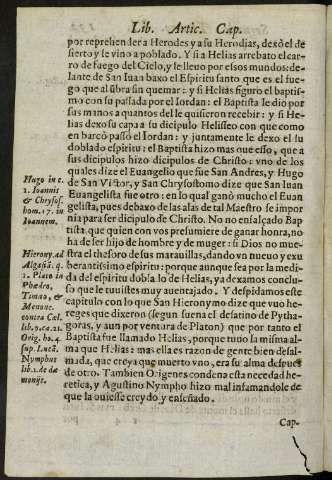 Lib. Artic. Cap.
por reprehender a Herodes y a su Herodias, dexò el de
sierto y le vino a poblado. Y si a Helias arrebato el car-
ro de fuego del Cielo, y le lleuo por essos mundos: de-
lante de San Iuan baxo el Espiritu santo que es el fue-
go que al abrasin quemar: y si Helias figuro el baptis-
mo con su passada por el Iordan: el Baptista le dio por
sus manos a quantos del le quisieron recebir: y si He-
lias dexo su capa a su dicipulo Heliseo con que como
en barcò passò el Iordan: y juntamente le dexo el su
doblado espiritu: el Baptista hizo mas que esso, que a
sus dicipulos hizo dicipulos de Christo: vno de los
quales dize el Euangelio que fue San Andres, y Hugo
de San Victor, y San Chrysostomo dize que San Iuan
Euangelista fue otro: en lo qual ganò mucho el Euan
gelista, pues debaxo de las alas de tal Maestro se impor
nia para ser dicipulo de Christo. No no ensalçado Bap
tista que quien con vos presumiere de ganar honra, no
ha de ser hijo de hombre y de muger: si Dios no mues-
tra el thesoro de sus marauillas, dando vn nueuo y exu
berantissimo espiritu: porque aunque sea por la medi-
da del espiritu dobla lo de Helias, ya dexamos conclu-
so que le tuuistes muy auentajado. Y despidamos este
capitulo con lo que San Hieronymo dize que vuo he-
reges que dixeron (segun suena el desatino de Pytha-
goras, y aun por ventura de Platon) que por tanto el
Baptista fue llamado Helias, porque tuuo la misma al-
ma que Helias: mas ella es razon de gente bien desal-
mada, que creya que muerto vno, era su alma despues
de otro. Tambien Origenes condena esta necedad he-
retica, y Agustino Nympho hizo mal infamandole de
que la vuiesse creydo y enseñado.
Cap.
Hugo in c.
1. Ioannis
& Chrysos.
hom. 17. in
Ioannem.
Hierony. ad
Algasiã. q.
1. Plato in
Phædro,
Timæo, &
Menone.
contra Cel.
Orig. ho. 4.
sup. Lucã.
Nymphus
lib. 1. de dæ
monijs.